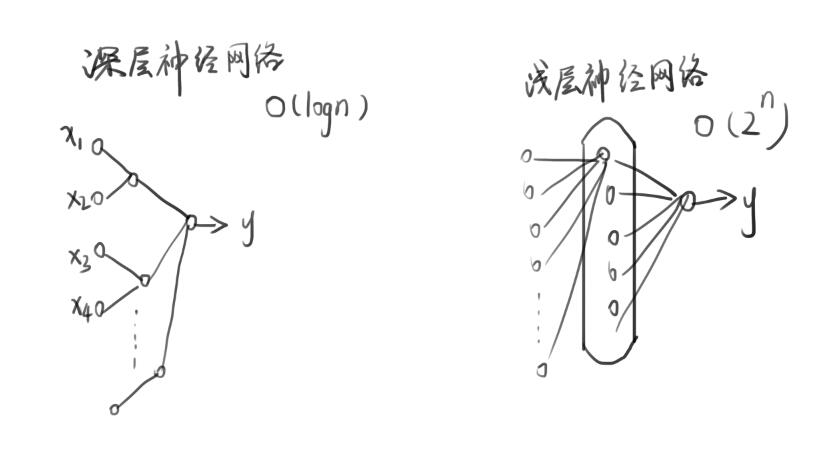 深层神经网络
O(logn)
x₁
x₂
x₃
x₄
y
浅层神经网络
O(2ⁿ)
y